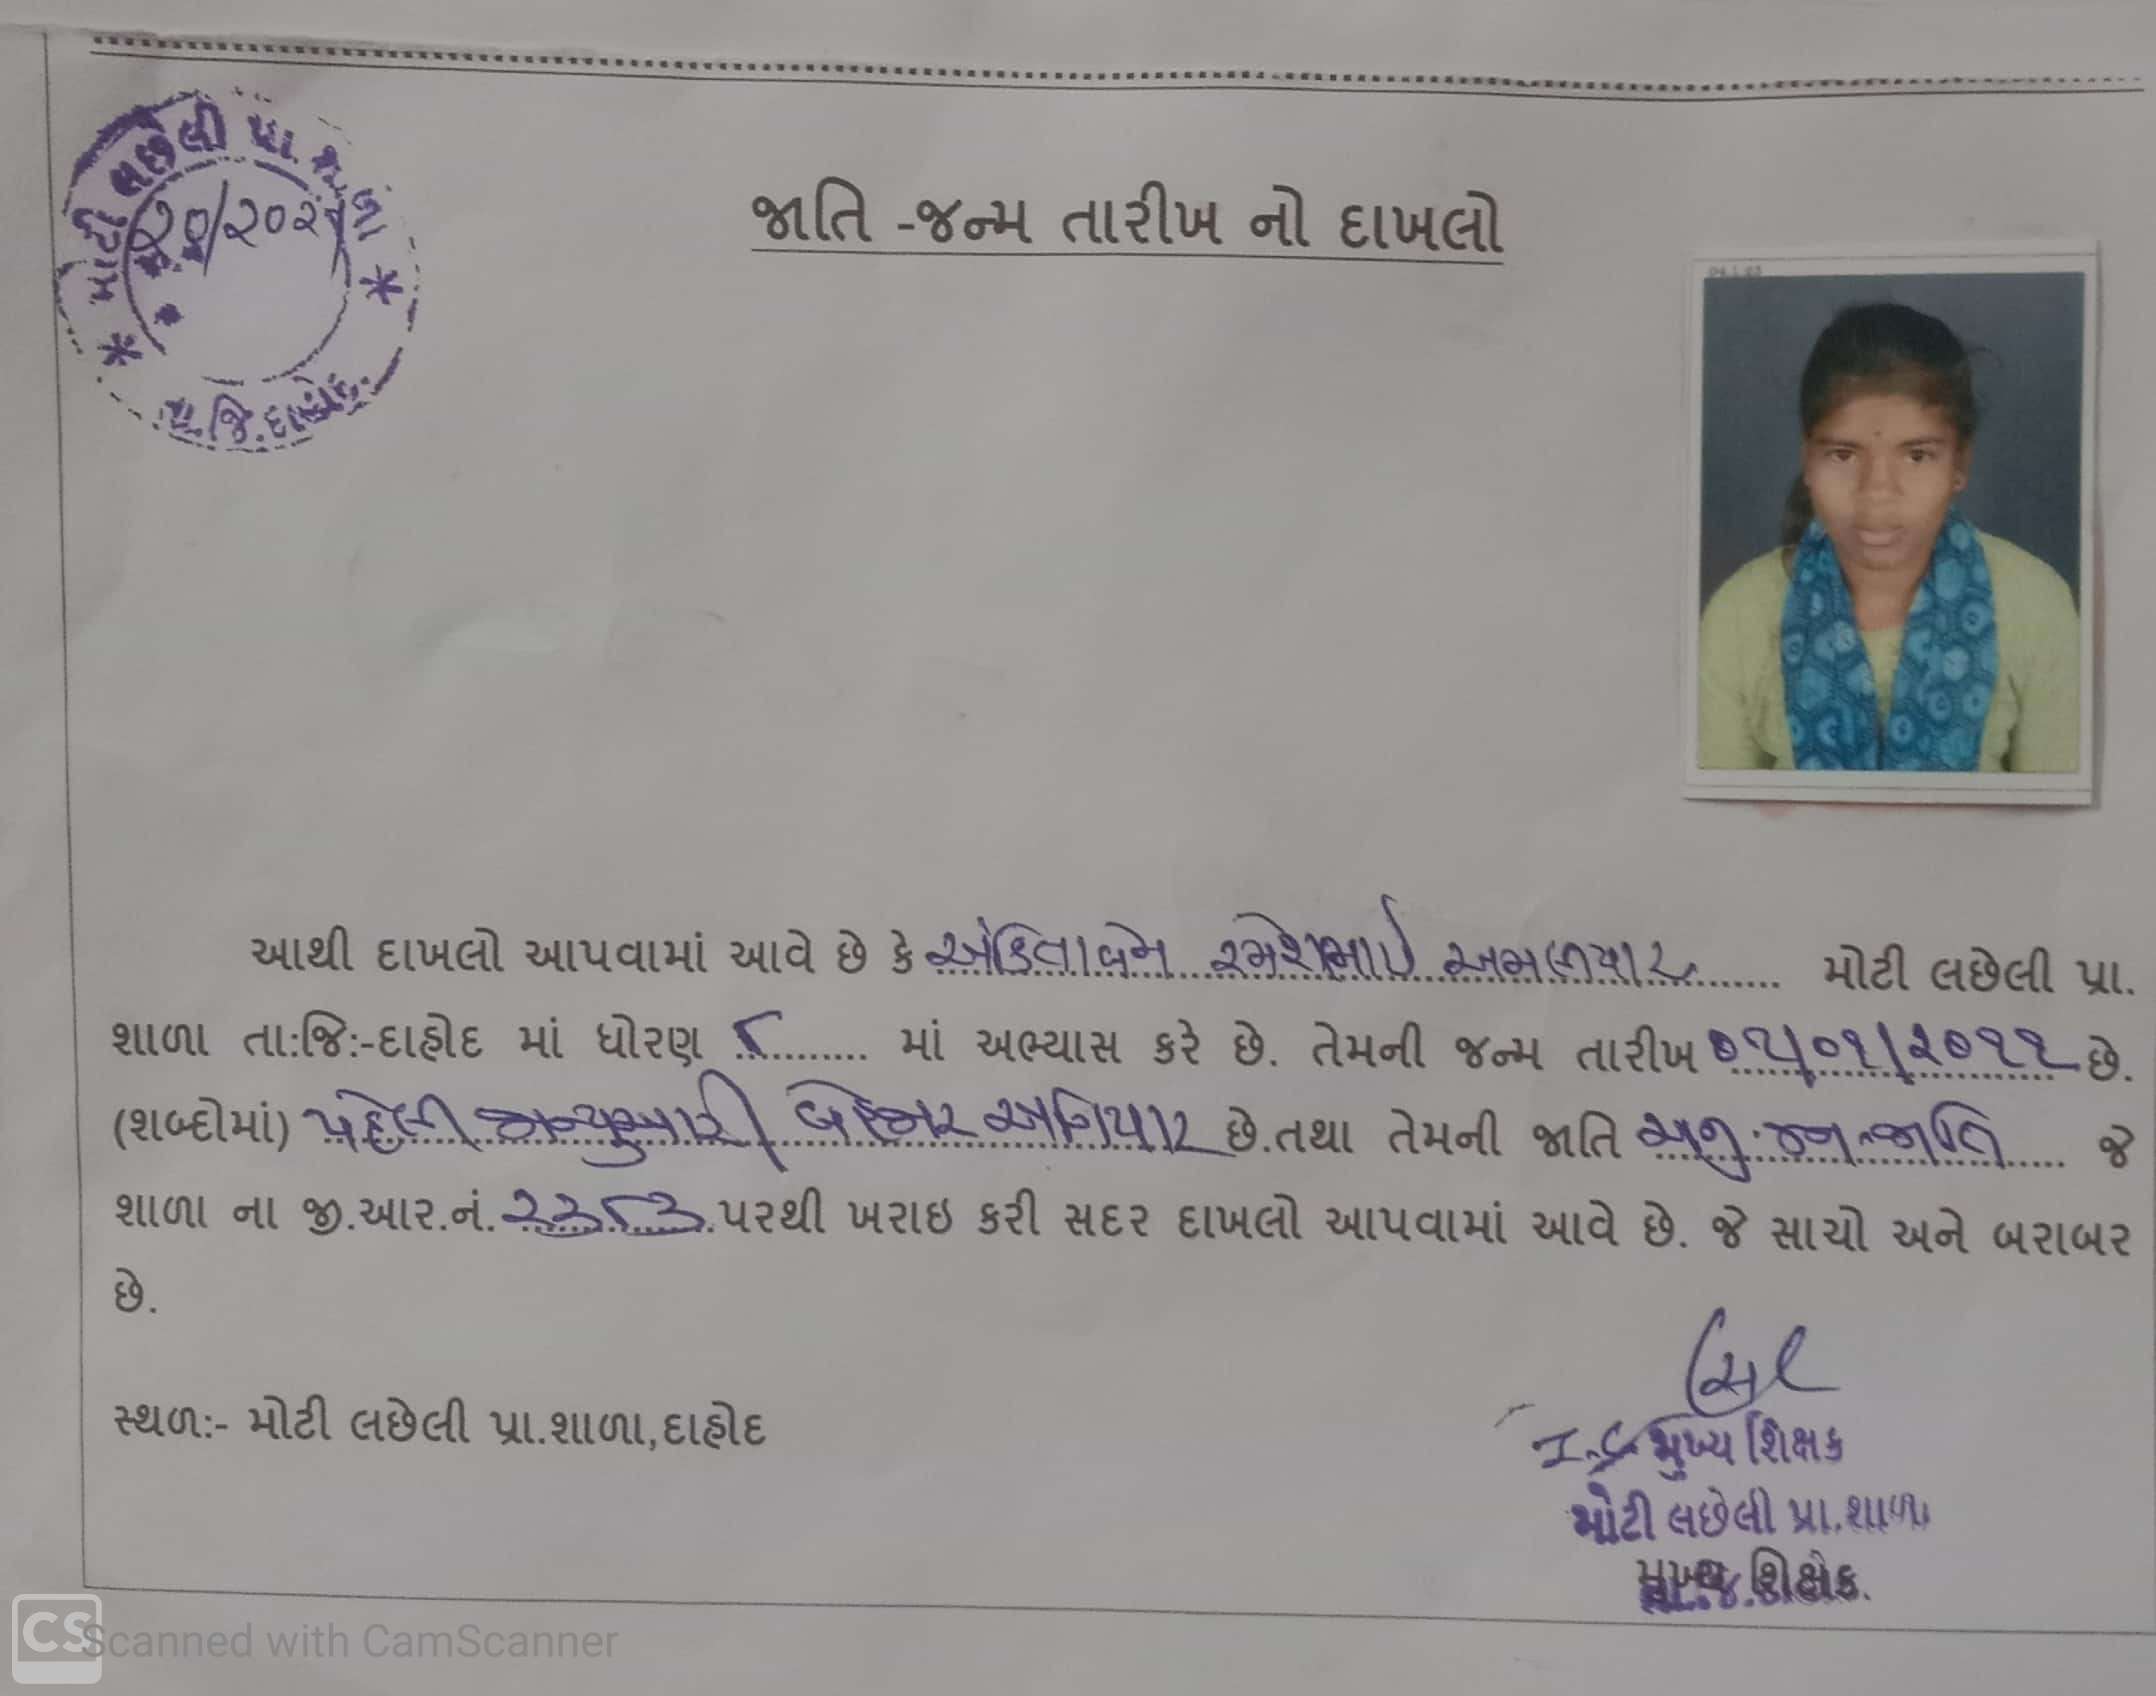 મોટી લછેલી પ્રા. શાળા
જિ.દાહોદ.
જાતિ -જન્મ તારીખ નો દાખલો
આથી દાખલો આપવામાં આવે છે કે અંકિતાબેન રમેશભાઈ અમળીયાર મોટી લછેલી પ્રા.
શાળા તા:જિ:-દાહોદ માં ધોરણ ૮ માં અભ્યાસ કરે છે. તેમની જન્મ તારીખ ૦૧/૦૧/૨૦૧૧ છે.
(શબ્દોમાં) પહેલી જાન્યુઆરી બે હજાર અગિયાર છે.તથા તેમની જાતિ અનુ.જન.જાતિ જે
શાળા ના જી.આર.નં. ૨૩૮૩ પરથી ખરાઇ કરી સદર દાખલો આપવામાં આવે છે. જે સાચો અને બરાબર
છે.
સ્થળ:- મોટી લછેલી પ્રા.શાળા,દાહોદ
મુખ્ય શિક્ષક
મોટી લછેલી પ્રા.શાળા
CS Scanned with CamScanner